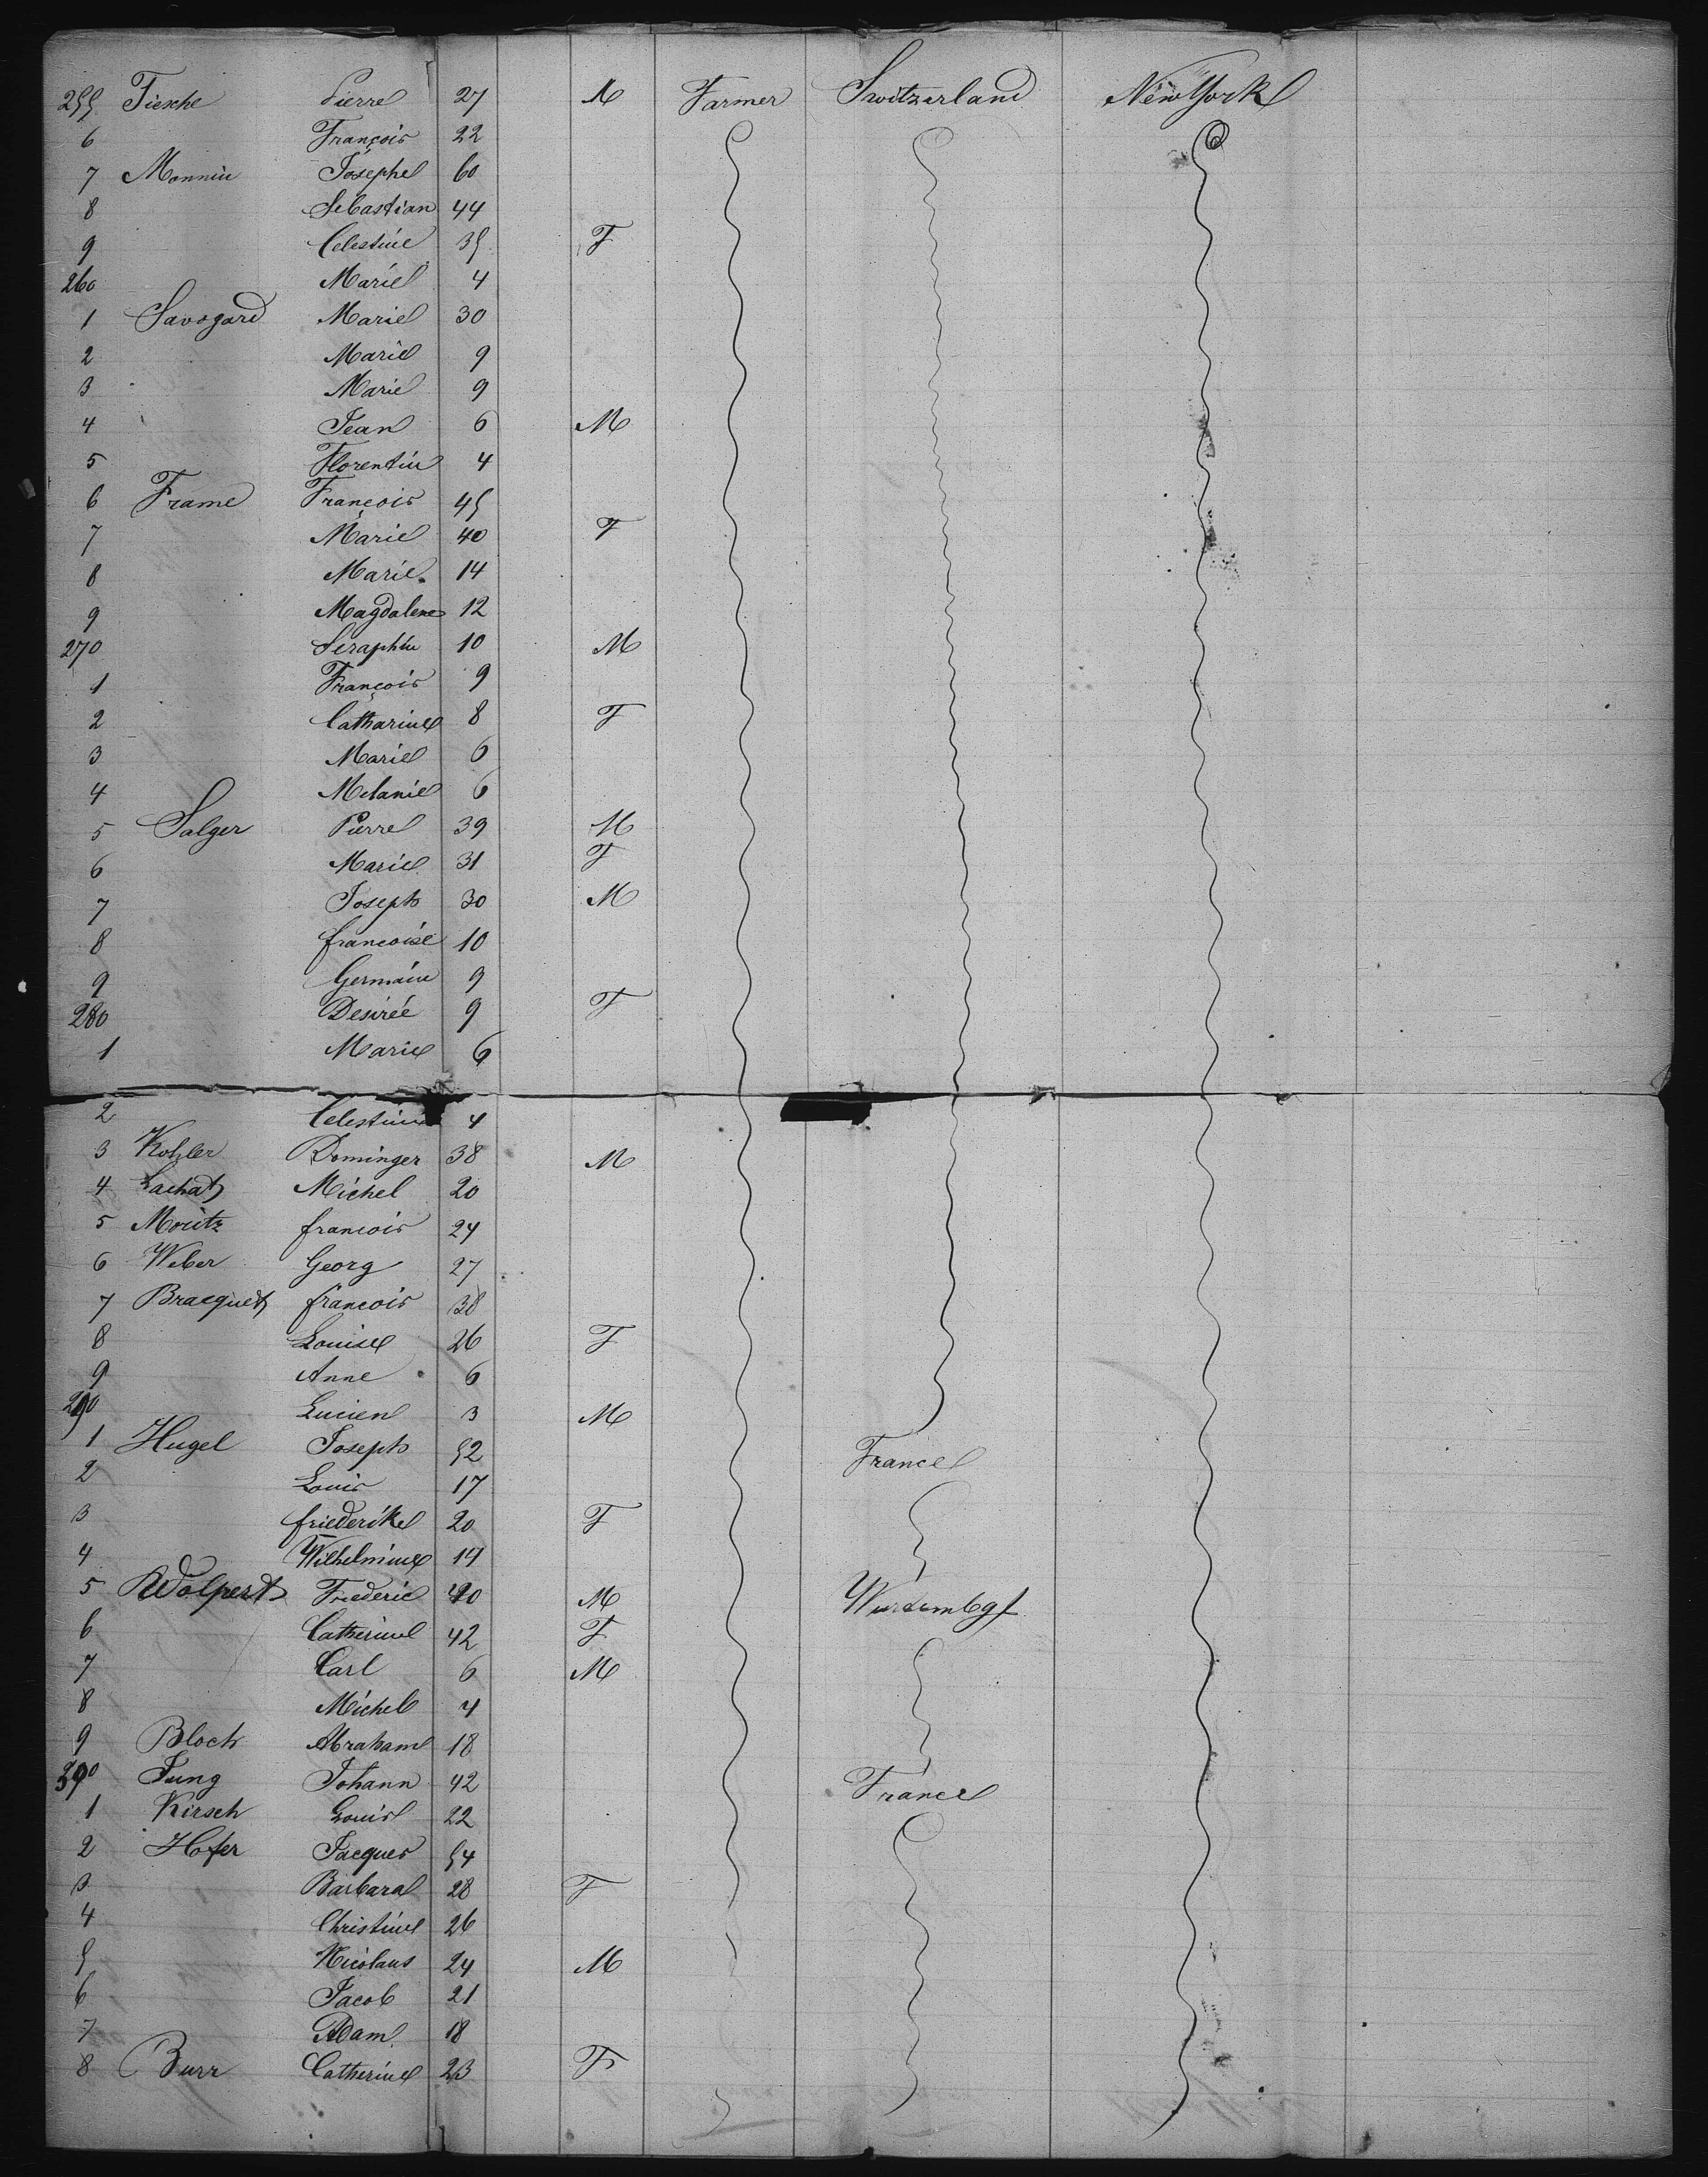 255 Fiesche Pierre 27 M Farmer Switzerland New York
6 François 22
7 Monnin Josephe 60
8 Sebastian 44
9 Celestine 35 F
260 Marie 4
1 Savogard Marie 30
2 Marie 9
3 Marie 9
4 Jean 6 M
5 Florentin 4
6 Frame François 45
7 Marie 40 F
8 Marie 14
9 Magdalene 12
270 Seraphin 10 M
1 François 9
2 Catharine 8 F
3 Marie 6
4 Melanie 6
5 Salger Pierre 39 M
6 Marie 31 F
7 Joseph 30 M
8 francoise 10
9 Germain 9
280 Desirée 9 F
1 Marie 6
2 Celestine 4
3 Kohler Dominger 38 M
4 Lachat Michel 20
5 Moritz francois 24
6 Weber Georg 27
7 Bracquet francois 38
8 Louise 26 F
9 Anne 6
290 Lucien 3 M
1 Hugel Joseph 52 France
2 Louis 17
3 friederike 20 F
4 Wilhelmine 14
5 Wolpert Frederic 40 M Wurtembg
6 Catherine 42 F
7 Carl 6 M
8 Michel 4
9 Bloch Abraham 18
300 Jung Johann 42 France
1 Kirsch Louis 22
2 Hofer Jacques 54
3 Barbara 28 F
4 Christine 26
5 Nicolaus 24 M
6 Jacob 21
7 Adam 18
8 Burr Catherine 23 F